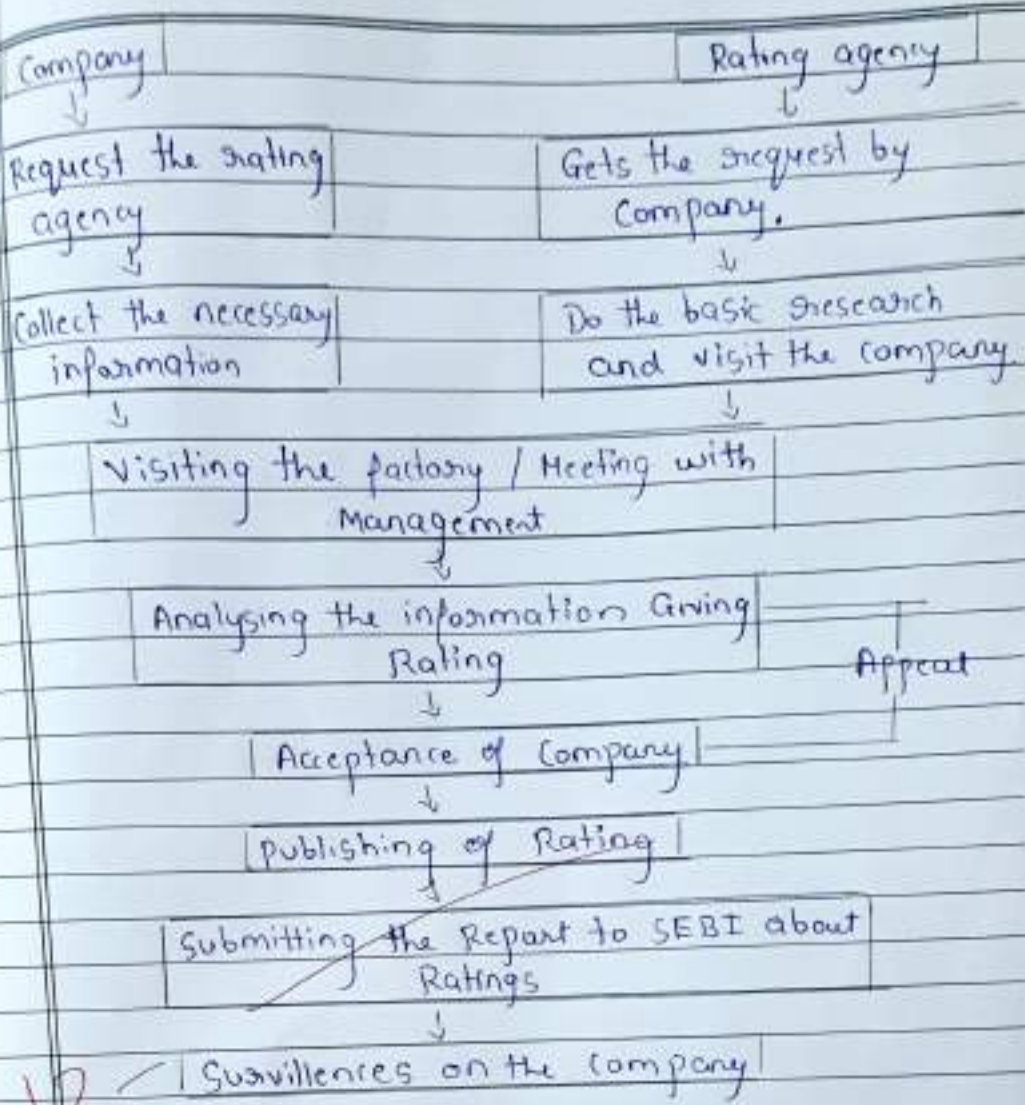 Company
Rating agency
Request the rating
agency
Gets the request by
Company.
Collect the necessary
information
Do the basic research
and visit the company
Visiting the factory / Meeting with
Management
Analysing the information Giving
Rating
Appeal
Acceptance of Company
Publishing of Rating
Submitting the Report to SEBI about
Ratings
Survillences on the company